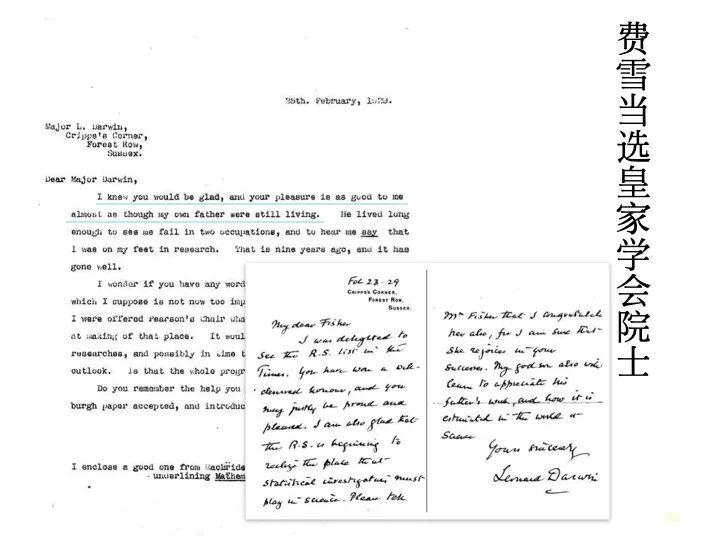 25th. February, 1929.
Major L. Darwin,
Cripps's Corner,
Forest Row,
Sussex.
Dear Major Darwin,
I knew you would be glad, and your pleasure is as good to me
almost as though my own father were still living. He lived long
enough to see me fail in two occupations, and to hear me say that
I was on my feet in research. That is nine years ago, and it has
gone well.
I wonder if you have any word
which I suppose is not now too imp
I were offered Pearson's Chair wha
at making of that place. It woul
researches, and possibly in time t
outlook. Is that the whole progr
Do you remember the help you
burgh paper accepted, and introduc
I enclose a good one from MacBride
underlining Mathem
Feb 23-29
CRIPPS'S CORNER,
FOREST ROW,
SUSSEX.
My dear Fisher
I was delighted to
see the R.S. list in the
Times. You have won a well-
deserved honour, and you
may justly be proud and
pleased. I am also glad that
the R.S. is beginning to
realize the place that
statistical investigation must
play in science. Please tell
Mrs Fisher that I congratulate
her also, for I am sure that
she rejoices in your
success. My godson also will
learn to appreciate his
father's work, and how it is
estimated in the world of
Science
Yours sincerely
Leonard Darwin
费雪当选皇家学会院士
30